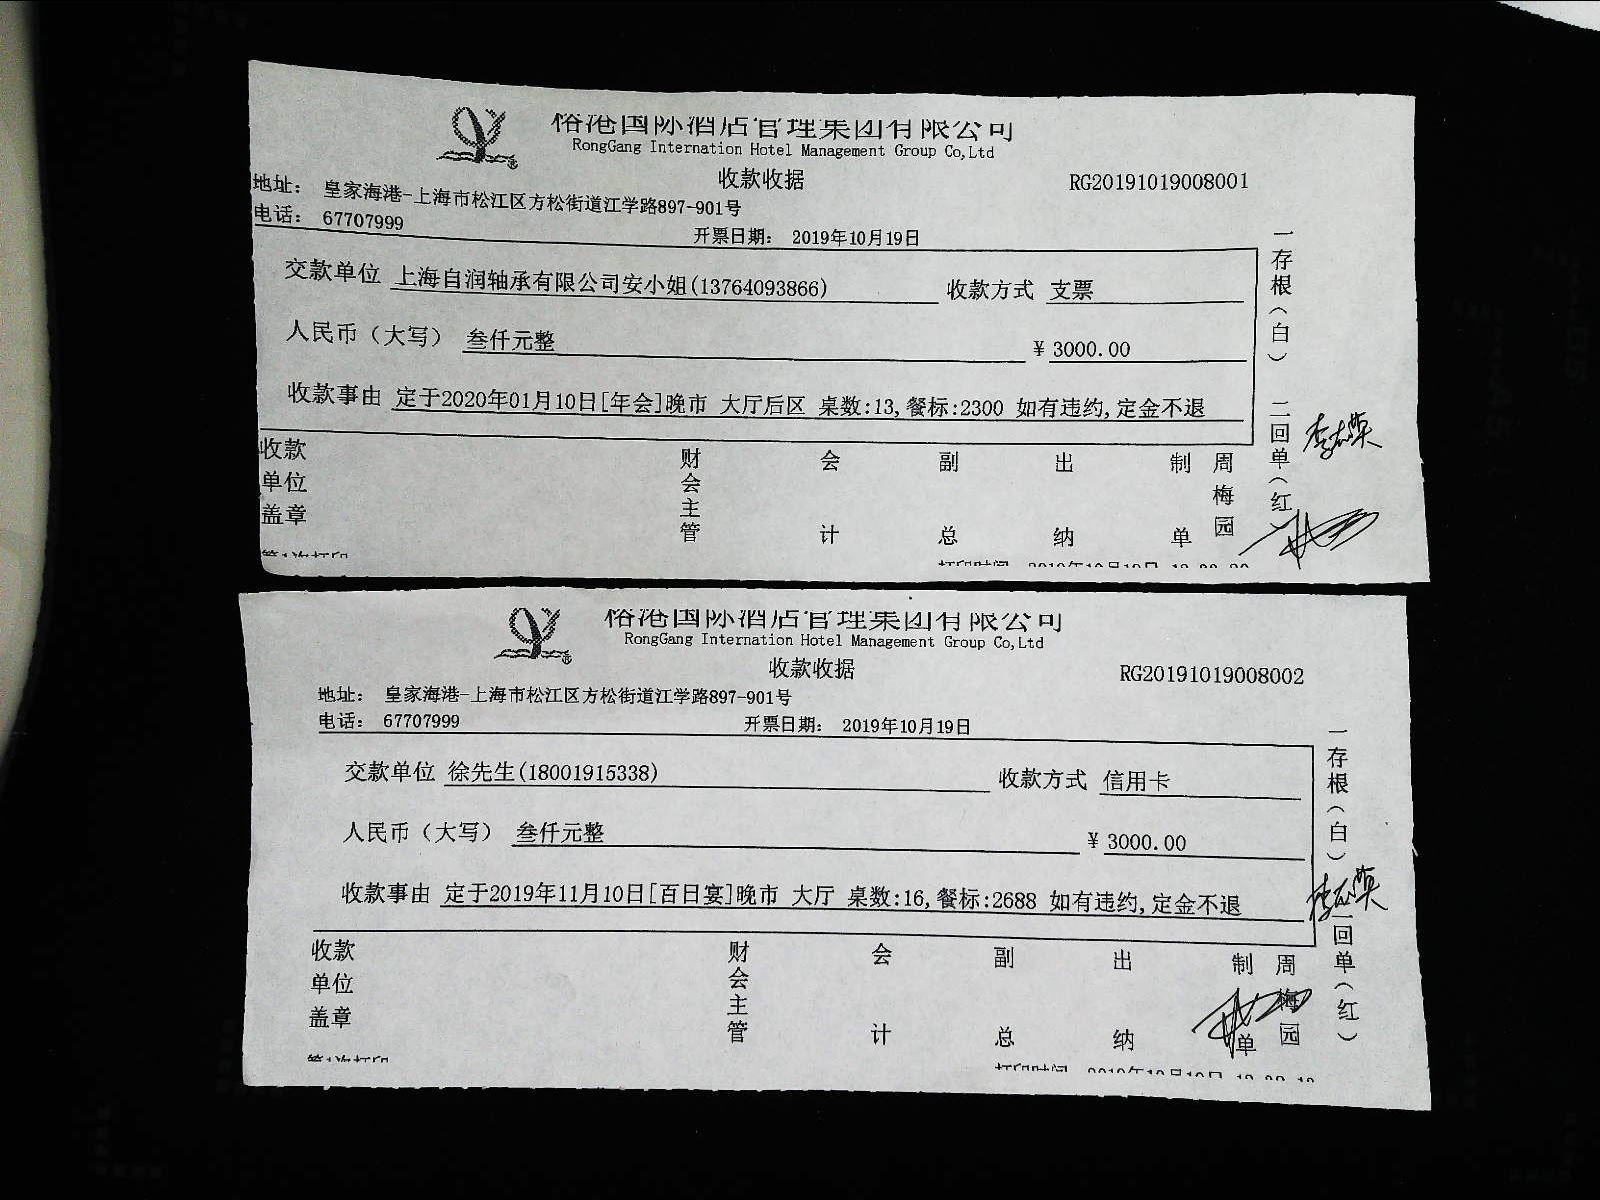 裕港国际酒店管理集团有限公司
RongGang Internation Hotel Management Group Co,Ltd
收款收据
RG20191019008001
地址： 皇家海港-上海市松江区方松街道江学路897-901号
电话： 67707999
开票日期： 2019年10月19日
交款单位 上海自润轴承有限公司安小姐(13764093866) 收款方式 支票
人民币（大写） 叁仟元整 ¥ 3000.00
收款事由 定于2020年01月10日[年会]晚市 大厅后区 桌数:13,餐标:2300 如有违约,定金不退
一存根（白） 二回单（红）
收款单位盖章 财会主管 会计 副总 出纳 制单 周梅园
第1次打印
打印时间 2019年10月19日
裕港国际酒店管理集团有限公司
RongGang Internation Hotel Management Group Co,Ltd
收款收据
RG20191019008002
地址： 皇家海港-上海市松江区方松街道江学路897-901号
电话： 67707999
开票日期： 2019年10月19日
交款单位 徐先生(18001915338) 收款方式 信用卡
人民币（大写） 叁仟元整 ¥ 3000.00
收款事由 定于2019年11月10日[百日宴]晚市 大厅 桌数:16,餐标:2688 如有违约,定金不退
一存根（白） 二回单（红）
收款单位盖章 财会主管 会计 副总 出纳 制单 周梅园
第1次打印
打印时间 2019年10月19日